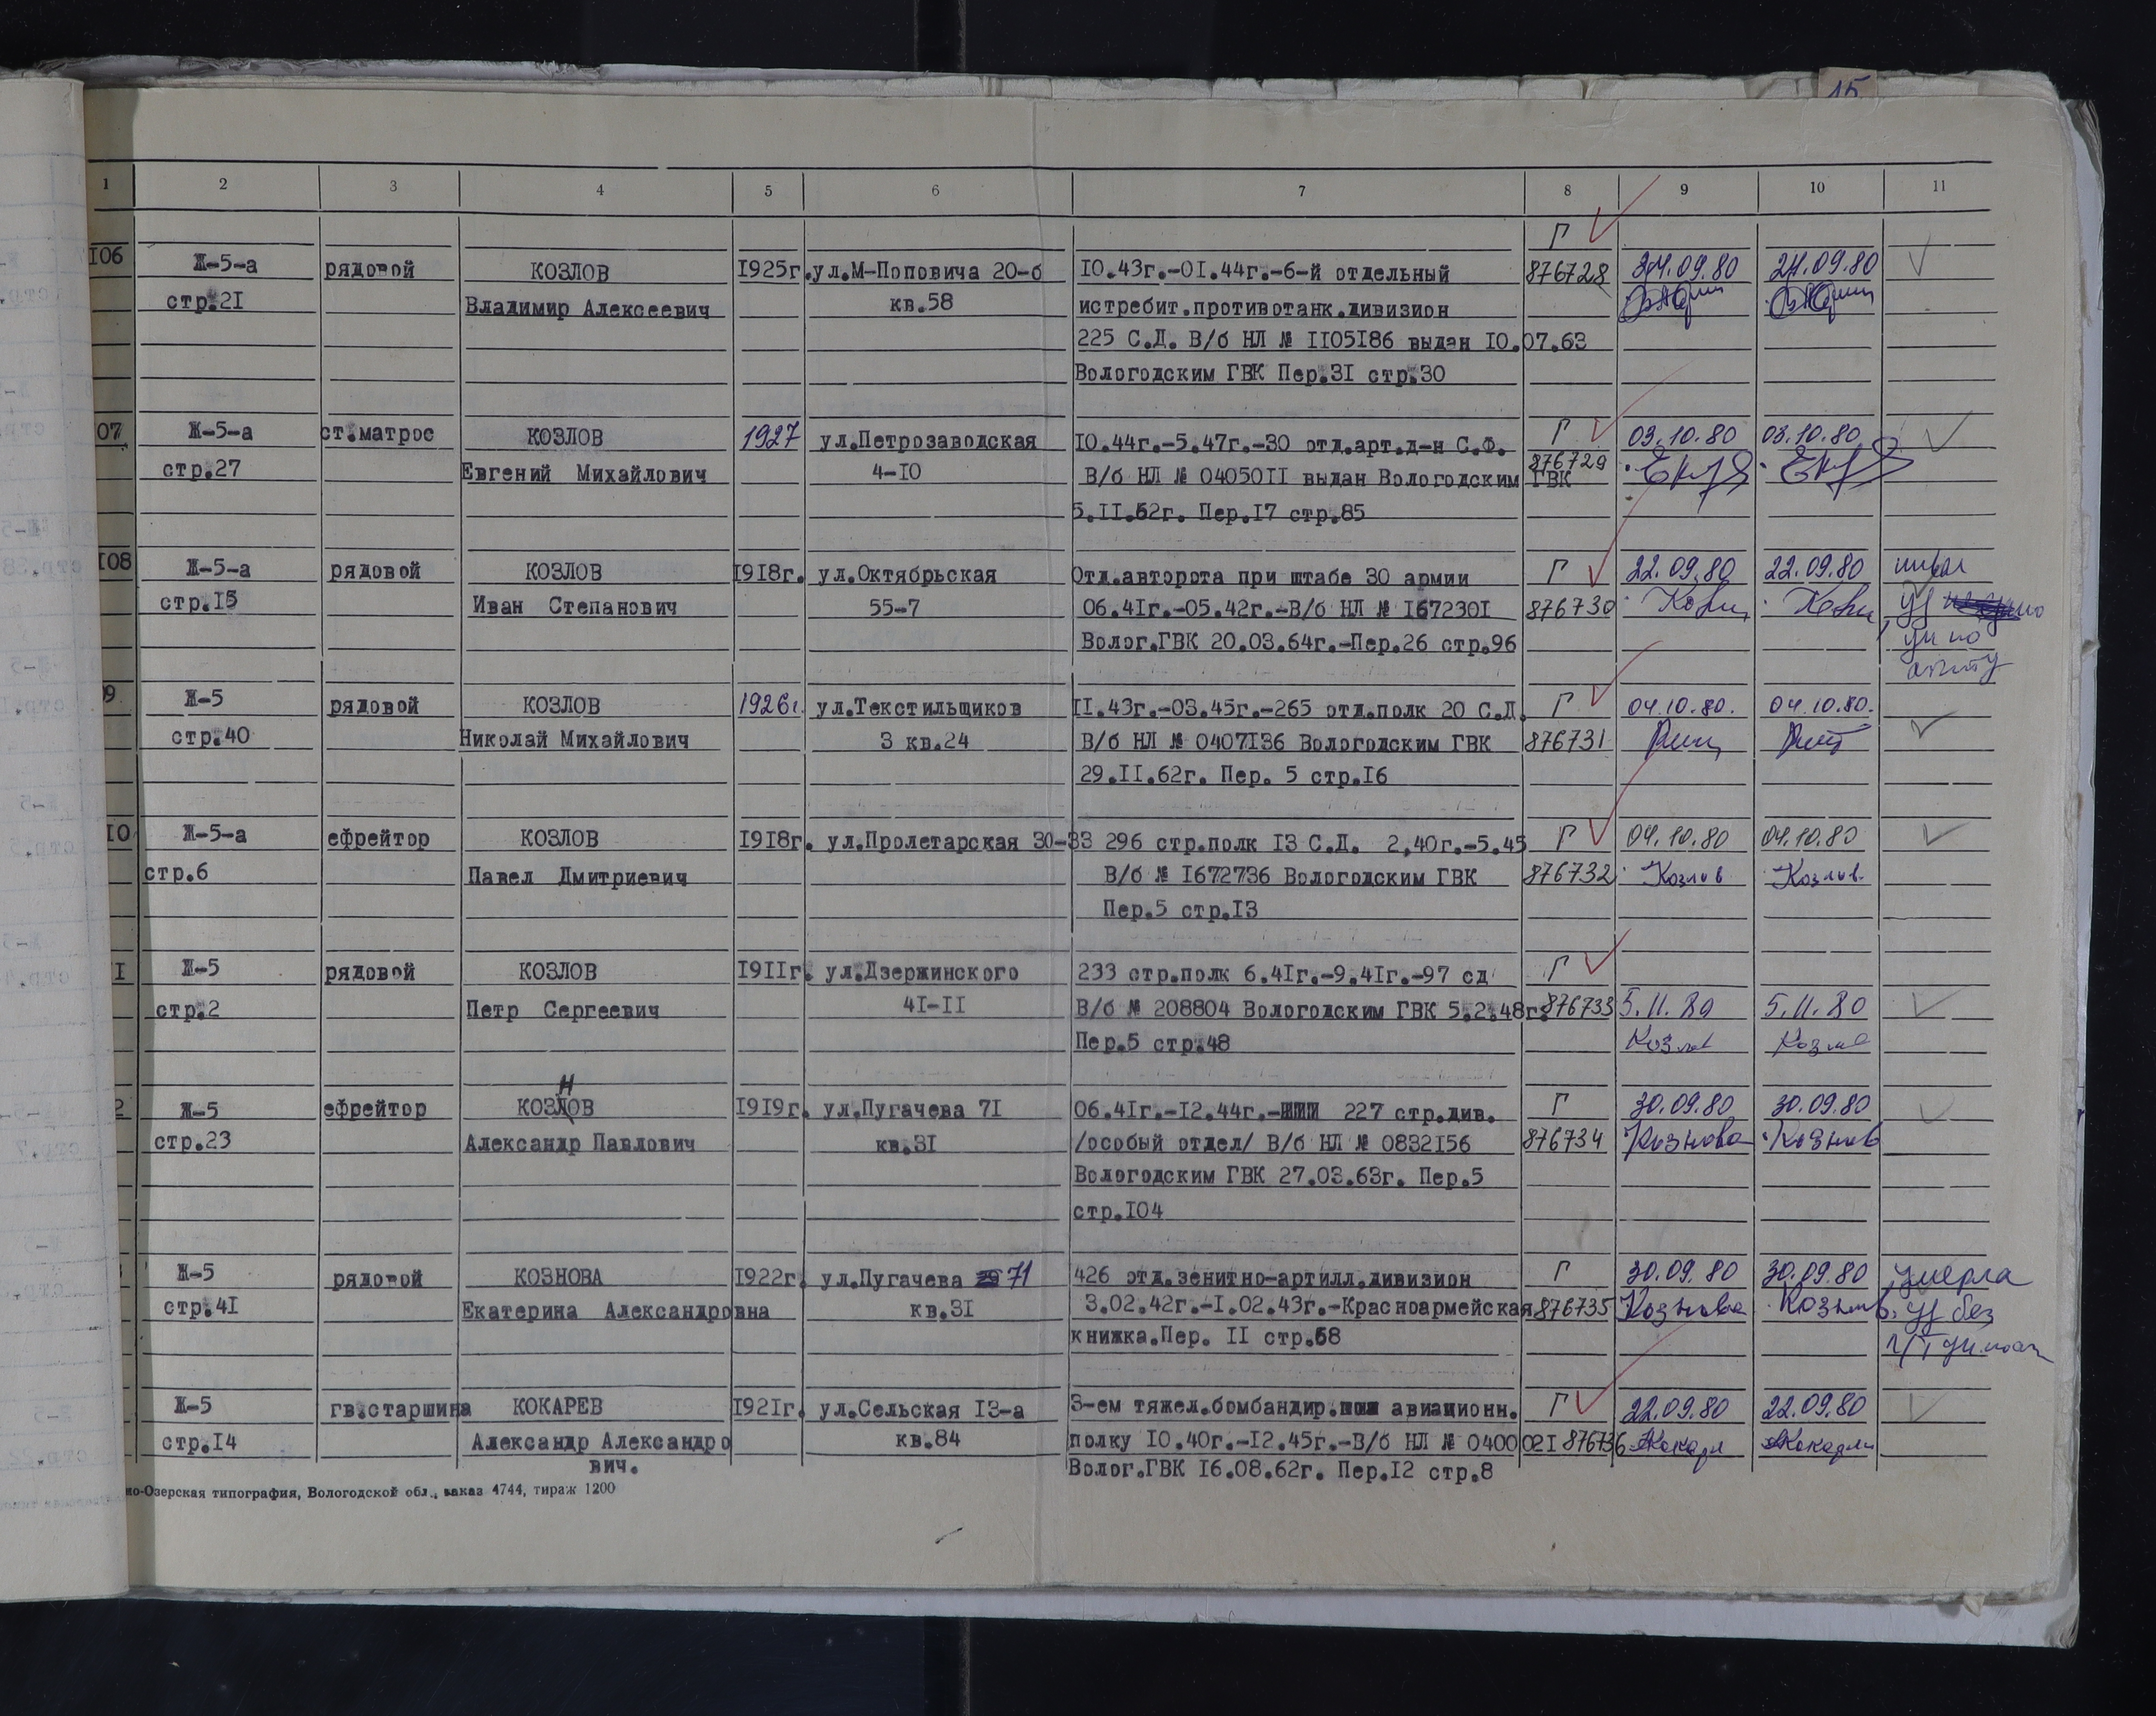 15
1 2 3 4 5 6 7 8 9 10 11
Г
106 Ж-5-а рядовой КОЗЛОВ 1925г. ул.М-Поповича 20-б 10.43г.-01.44г.-6-й отдельный 876728 24.09.80 24.09.80
стр.21 Владимир Алексеевич кв.58 истребит.противотанк.дивизион
225 С.Д. В/б НЛ № 1105186 выдан 10.07.63
Вологодским ГВК Пер.31 стр.30
07 Ж-5-а ст.матрос КОЗЛОВ 1927 ул.Петрозаводская 10.44г.-5.47г.-30 отд.арт.д-н С.Ф. Г 03.10.80 03.10.80
стр.27 Евгений Михайлович 4-10 В/б НЛ № 0405011 выдан Вологодским ГВК 876729
5.11.62г. Пер.17 стр.85
108 Ж-5-а рядовой КОЗЛОВ 1918г. ул.Октябрьская Отд.авторота при штабе 30 армии Г 22.09.80 22.09.80
стр.15 Иван Степанович 55-7 06.41г.-05.42г.-В/б НЛ № 1672301 876730
Волог.ГВК 20.03.64г.-Пер.26 стр.96
09 Ж-5 рядовой КОЗЛОВ 1926г. ул.Текстильщиков 11.43г.-03.45г.-265 отд.полк 20 С.Д. Г 04.10.80. 04.10.80.
стр.40 Николай Михайлович 3 кв.24 В/б НЛ № 0407136 Вологодским ГВК 876731
29.11.62г. Пер. 5 стр.16
10 Ж-5-а ефрейтор КОЗЛОВ 1918г. ул.Пролетарская 30-33 296 стр.полк 13 С.Д. 2,40г.-5.45 Г 04.10.80 04.10.80
стр.6 Павел Дмитриевич В/б № 1672736 Вологодским ГВК 876732 Козлов Козлов.
Пер.5 стр.13
1 Ж-5 рядовой КОЗЛОВ 1911г. ул.Дзержинского 233 стр.полк 6.41г.-9.41г.-97 сд Г
стр.2 Петр Сергеевич 41-11 В/б № 208804 Вологодским ГВК 5.2.48г. 876733 5.11.80 5.11.80
Пер.5 стр.48
Н
2 Ж-5 ефрейтор КОЗЛОВ 1919г. ул.Пугачева 71 06.41г.-12.44г.- 227 стр.див. Г 30.09.80 30.09.80
стр.23 Александр Павлович кв.31 /особый отдел/ В/б НЛ № 0832156 876734 Кознова Кознов
Вологодским ГВК 27.03.63г. Пер.5
стр.104
Ж-5 рядовой КОЗНОВА 1922г. ул.Пугачева 71 426 отд.зенитно-артилл.дивизион Г 30.09.80 30.09.80 умерла
стр.41 Екатерина Александровна кв.31 3.02.42г.-1.02.43г.-Красноармейская 876735 Кознова уд без
книжка.Пер. 11 стр.68
Ж-5 гв.старшина КОКАРЕВ 1921г. ул.Сельская 13-а 3-ем тяжел.бомбандир. авиационн. Г 22.09.80 22.09.80
стр.14 Александр Александро кв.84 полку 10.40г.-12.45г.-В/б НЛ № 0400021 876736
вич. Волог.ГВК 16.08.62г. Пер.12 стр.8
но-Озерская типография, Вологодской обл., заказ 4744, тираж 1200